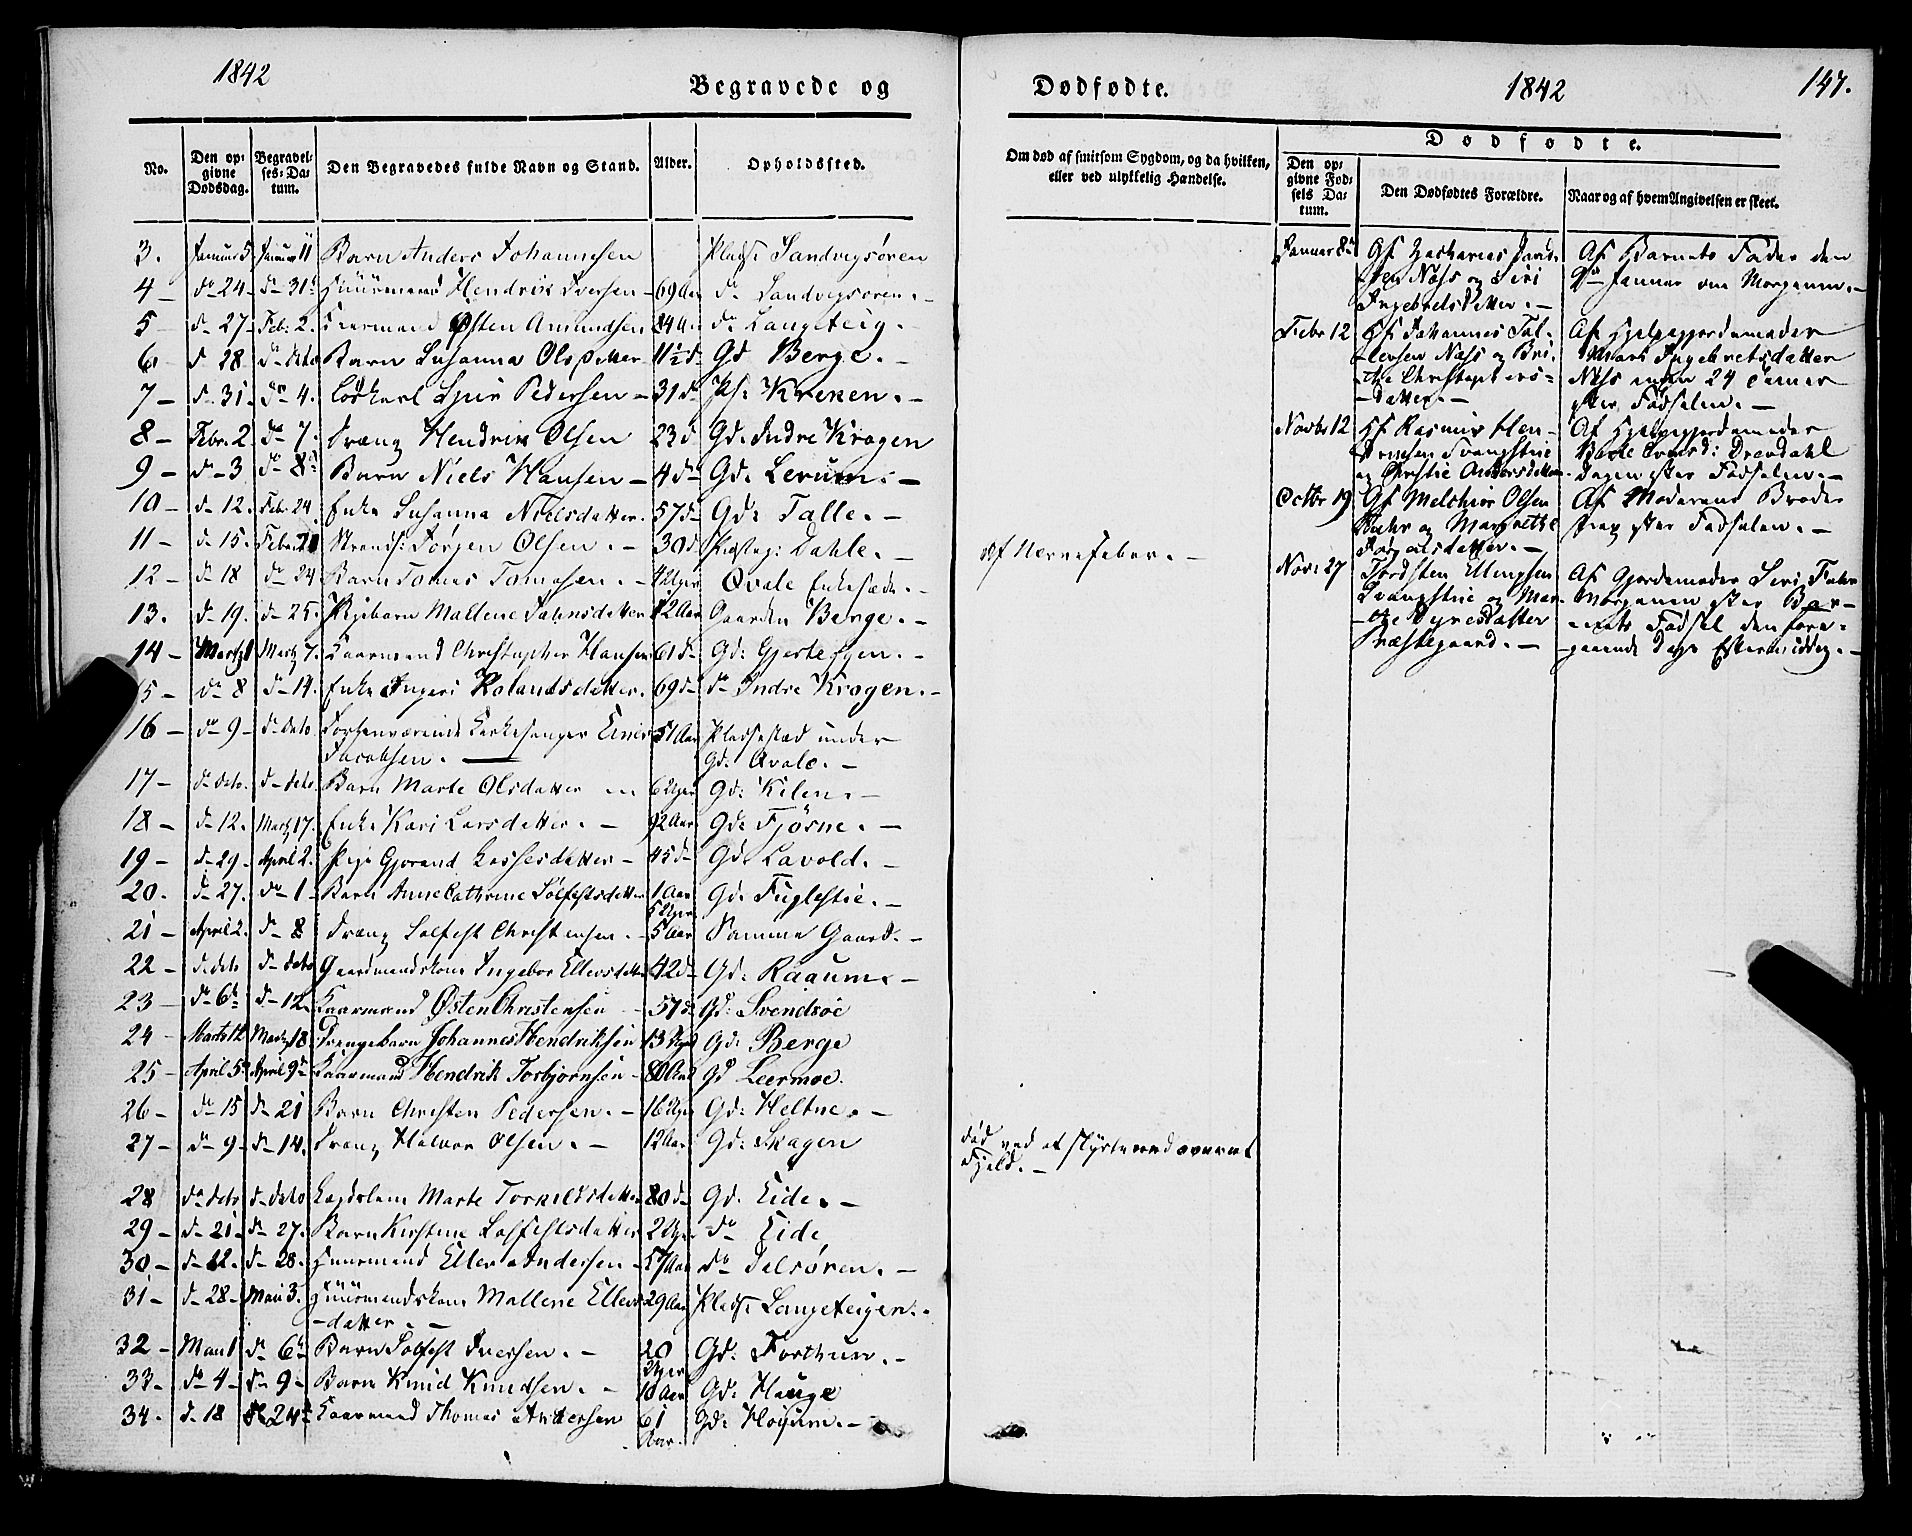 1842
Begravede og
No.
Den op-
givne
Dødsdag.
Begravel-
ses-Da-
tum.
Den Begravedes fulde Navn og Stand.
Alder.
Opholdssted.
3. Januar 5 Januar 11 Barn Anders Johannesen Plads Sandvigsøren
4 - do 24 - do 31 Huusmand Hendrik Iversen - 69 Aar do Sandvigsøren. -
5 - do 27 - Feb. 2. Kaarmand Østen Amundsen 84 Aar do Langeteig. -
6 - d 28 do dito Barn Susanna Olsdatter 11½ do Gd Berge. -
7 - d 31 - do 4. Løskarl Siur Pedersen - 31 do Pl: Kreken. -
8 - Febr. 2 do 7. Dreng Hendrik Olsen 23 d Gd. Indre Krogen
9 - do 3 do 8 Barn Niels Hansen - 4 do Gd. Lerum. -
10 - do 12. Feb. 24. Enke Susanna Nielsdatter. 57 do Gd: Talle. -
11 - do 15. Febr. Strands: Jørgen Olsen. - 30 d Dahle. -
12 - do 18 do 24 Barn Tomas Tomasen. - 4 Uger Qvale Enkesæde. -
13. do 19. do 25. Pigebarn Mallene Johnsdatter 12 Aar Gaarden Berge. -
14 - Marts 1 Marts 7. Kaarmand Christopher Hansen 61 do Gd: Gjesteigen. -
15 - do 8 do 14. Enke Ingeri Rolandsdatter. 69 do do Indre Krogen. -
16 - do 9 - do dito Forhenværende Kirkesanger Einer 51 Aar Pladsested under
Jacobsen. - Gd: Qvale. -
17 - do dito. do dito Barn Marte Olsdatter 6 Uger Gd: Kilen. -
18 - do 12. Marts 17. Enke Kari Larsdatter. - 92 Aar Gd: Fjørne. -
19 - do 29. April 2. Pige Gjorand Lassesdatter - 45 do Gd Lavold. -
20. do 27. do 1 - Barn Anne Cathrine Solfestsdatter 1 Aar Gd. Fuglestie. -
5 Uger
21 - April 2. do 8 Dreng Solfest Christensen. - 5 Aar Samme Gaard. -
22 - do dito do dito Gaardmandskone Ingebor Ellensdatter 42 do Gd: Raaum. -
23 - do 6 do 12. Kaarmand Østen Christensen - 57 do Gd: Svendsøe
24 - Marts 12 Marts 18. Drengebarn Johannes Hendriksen 13 Uger Gd: Berge
25 - April 5 April 9 Kaarmand Hendrik Torbjørnsen - 80 Aar Gd Leermoe.
26 - do 15 do 21 Barn Christen Pedersen. - 16 Uger Gd: Heltne. -
27 - do 9 - do 14. Dreng Halvor Olsen. - 12 Aar Gd: Skagen
28 do dito do dito Marte Torkildsdatter 80 do Gd. Eide. -
29 - do 21 - do 27. Barn Kirstine Solfestsdatter 2 Uger do Eide
30 - do 22. do 28. Huusmand Eller Andersen - 57 Aar do
31 - do 28 - Mai 3. Huusmandskone Mallene Ellens- 29 Aar Plads Langeteigen. -
-datter. -
32 - Mai 1 do 6 Barn Solfest Iversen. - 20 Gd: Forthun. -
Uger
33 - do 4 - do 9 - Barn Knud Knudsen. - 10 Aar Gd: Hauge
34. do 18 24 Kaarmand Thomas Andersen 61 Gd: Høyum. -
Aar.
Dødfødte.
1842
147.
Om død af smitsom Sygdom, og da hvilken,
eller ved ulykkelig Hændelse.
Dødfødte.
Den op-
givne Fød-
sels Da-
tum.
Den Dødfødtes Forældre.
Naar og af hvem Angivelsen er skeet.
af Nervefeber. -
død ved at styrte ned over et
Fjeld. -
Januar 8 Af Zacharias Af Barnets Fader den
Næss og Siri 9de Januar om Morgenen. -
Ingebrits Datter. -
Febr 12 Af Johannes Tol- Af Hjelpegjordemoder
-levsen Næss og Bri- Ingebretsdatter
-the Christophers- Næss inden 24 Timer
-datter. - efter Fødselen. -
Novbr 12 Af Rasmus Hen- Af Hjelpegjordemoder
driksen Svangstrie Dresdahl
og Christie Andersdatter. Dagen efter Fødselen. -
Octbr 19 Af Melchior Olsen Af Moderens Broder
og Margrethe strax efter Fødselen. -
Novbr 27 Thorsten Ellingsen Af Gjordemoder Siri
Svangstrie og Mar- Morgenen efter Bar-
-the Dyresdatter -nets Fødsel den fore-
Præstegaard. - -gaaende Dags Eftermiddag. -